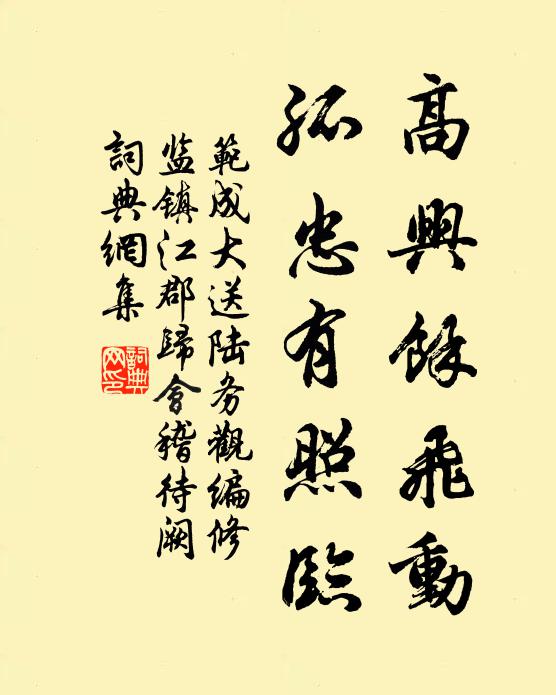 高興餘飛動
孤忠有照臨
範成大送陆务觀編修
监镇江郡歸會稽待阙
詞典網集
詞典網印